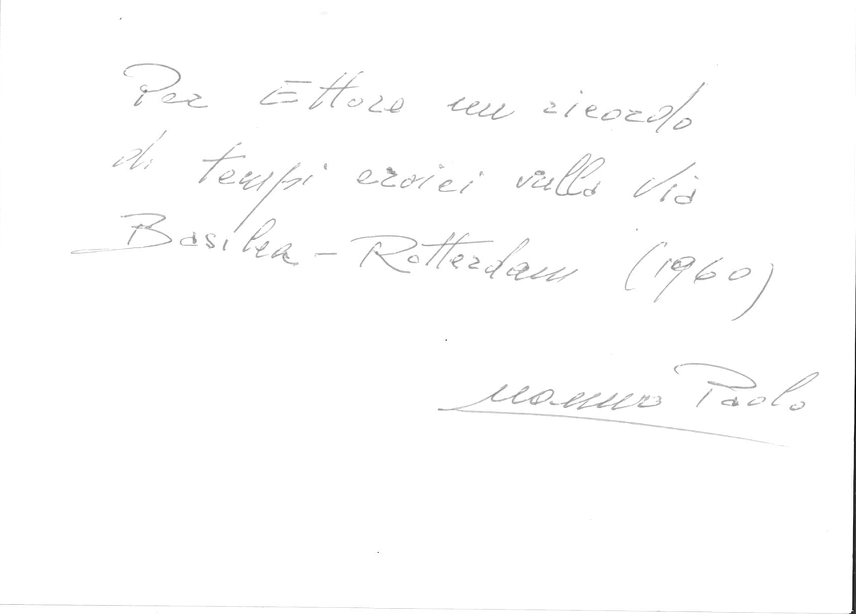 Per Ettore un ricordo
di tempi eroici sulla Via
Basilea - Rotterdam (1960)
nonno Paolo